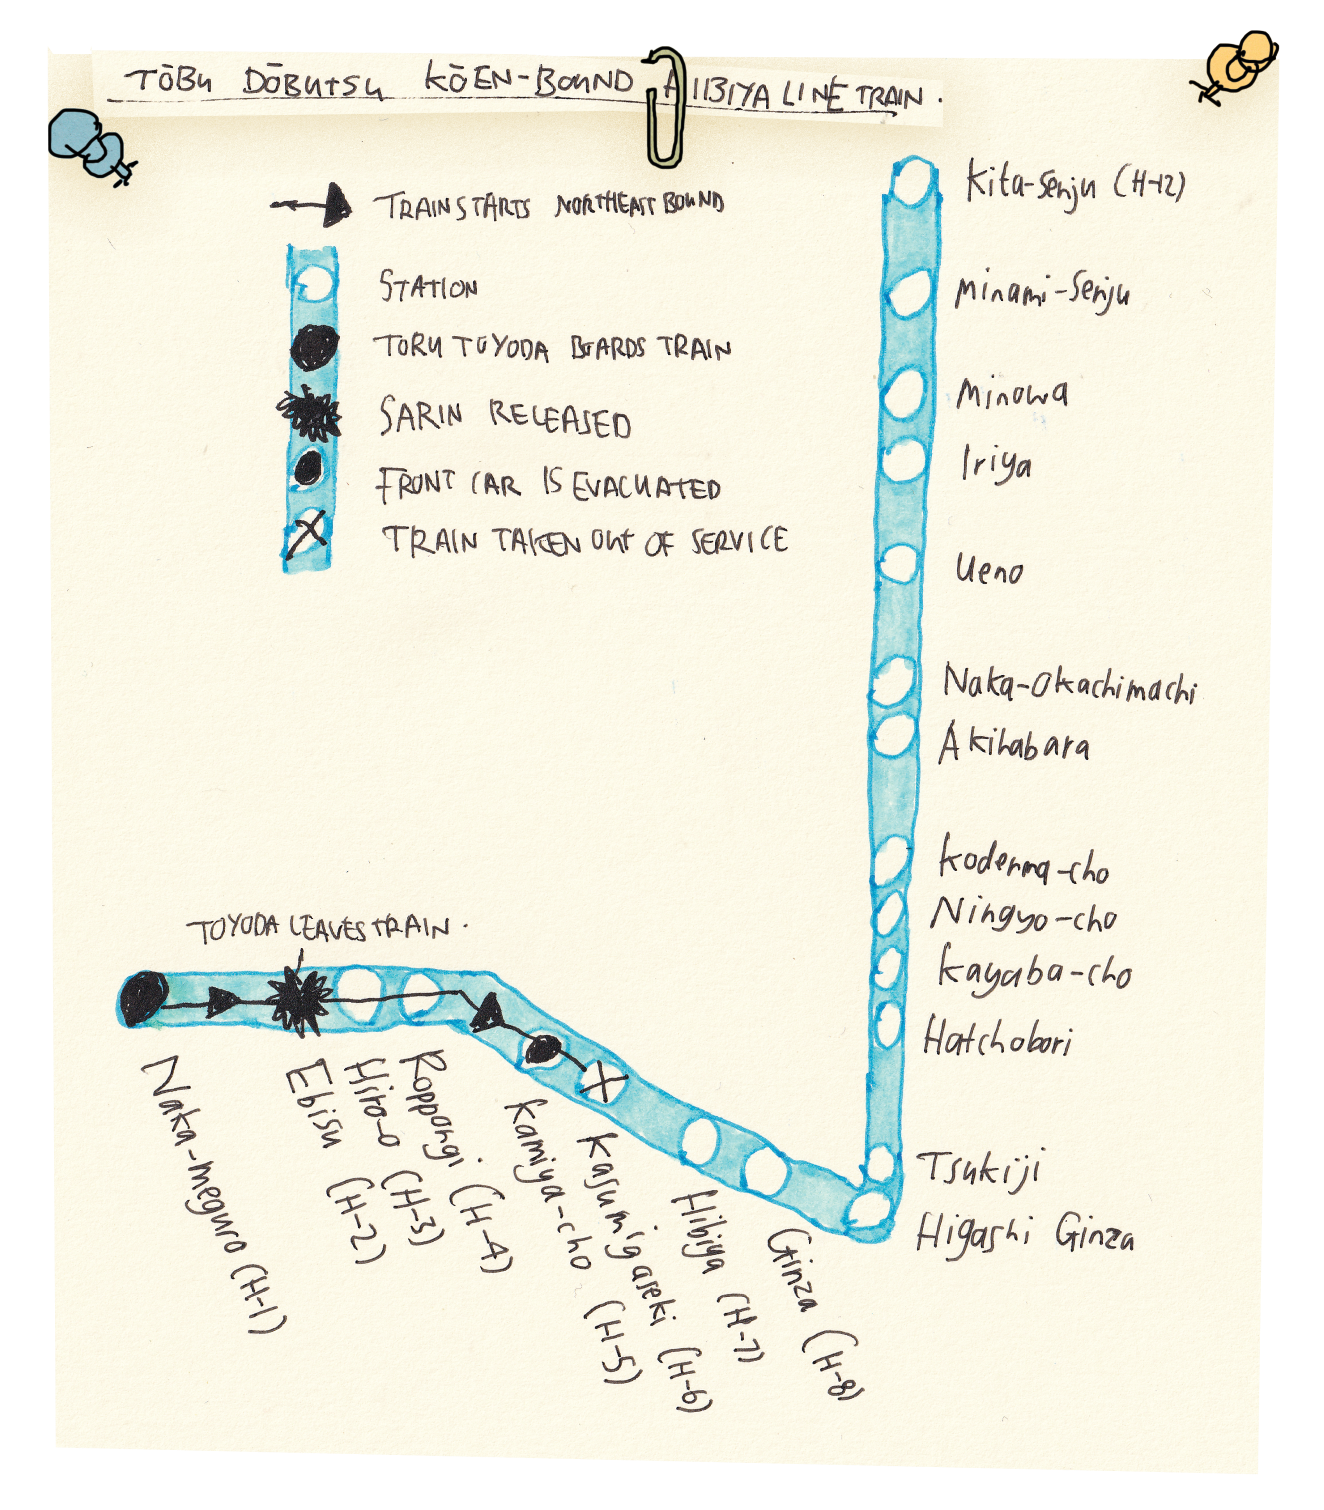 TŌBU DŌBUTSU KŌEN-BOUND HIBIYA LINE TRAIN.
TRAIN STARTS NORTHEAST BOUND
STATION
TORU TOYODA BOARDS TRAIN
SARIN RELEASED
FRONT CAR IS EVACUATED
TRAIN TAKEN OUT OF SERVICE
Kita-Senju (H-12)
Minami-Senju
Minowa
Iriya
Ueno
Naka-Okachimachi
Akihabara
Kodenma-cho
Ningyo-cho
Kayaba-cho
Hatchobori
Tsukiji
Higashi Ginza
TOYODA LEAVES TRAIN.
Naka-meguro (H-1)
Ebisu (H-2)
Hiro-o (H-3)
Roppongi (H-4)
Kamiya-cho (H-5)
Kasumigaseki (H-6)
Hibiya (H-7)
Ginza (H-8)